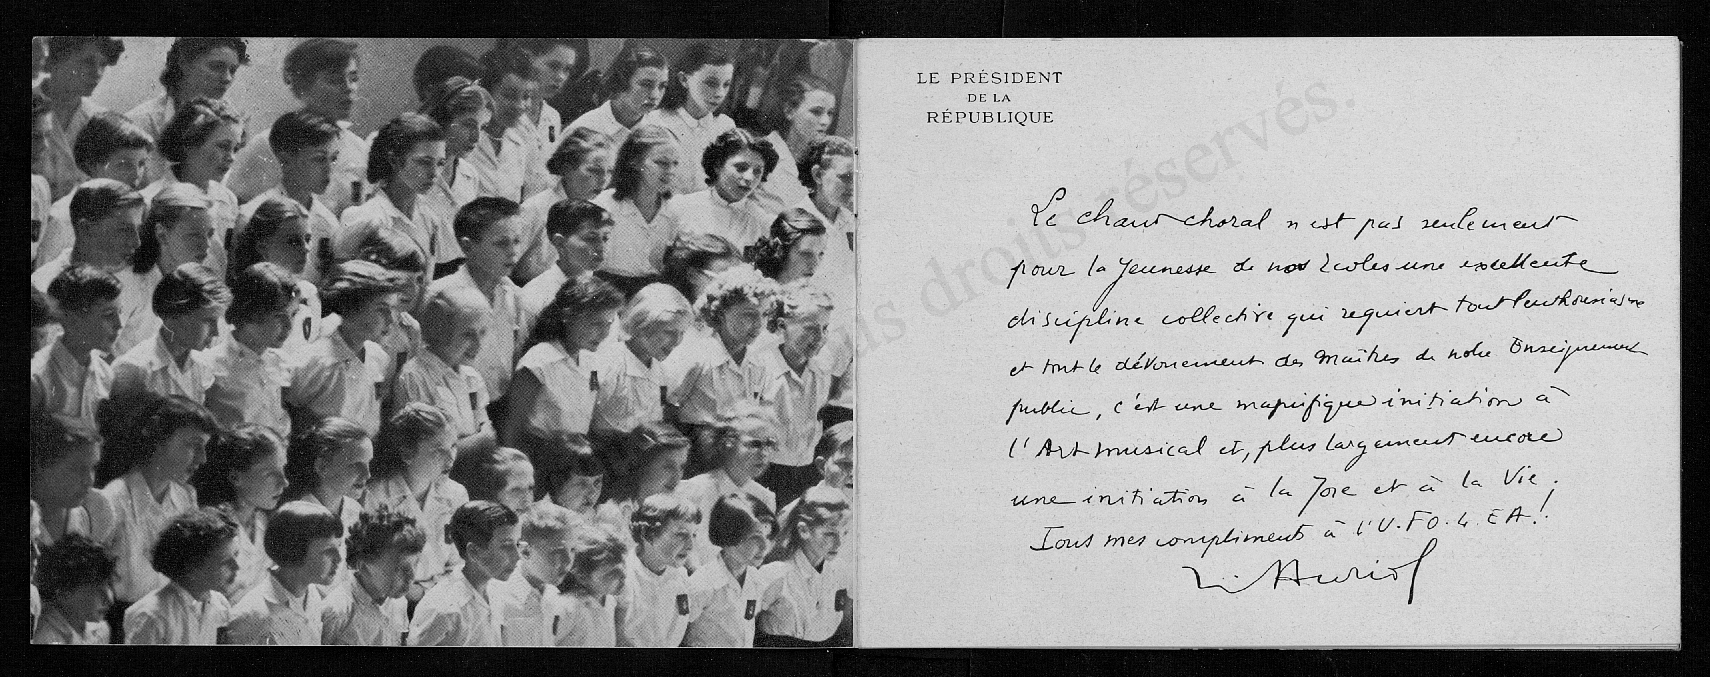 LE PRÉSIDENT
DE LA
RÉPUBLIQUE
Le chant choral n'est pas seulement
pour la Jeunesse de nos Ecoles une excellente
discipline collective qui requiert tout l'enthousiasme
et tout le dévouement des Maîtres de notre Enseignement
public, c'est une magnifique initiation à
l'Art musical et, plus largement encore
une initiation à la Joie et à la Vie.
Tous mes compliments à l'U.F.O.L.E.A!
V. Auriol
droits réservés.